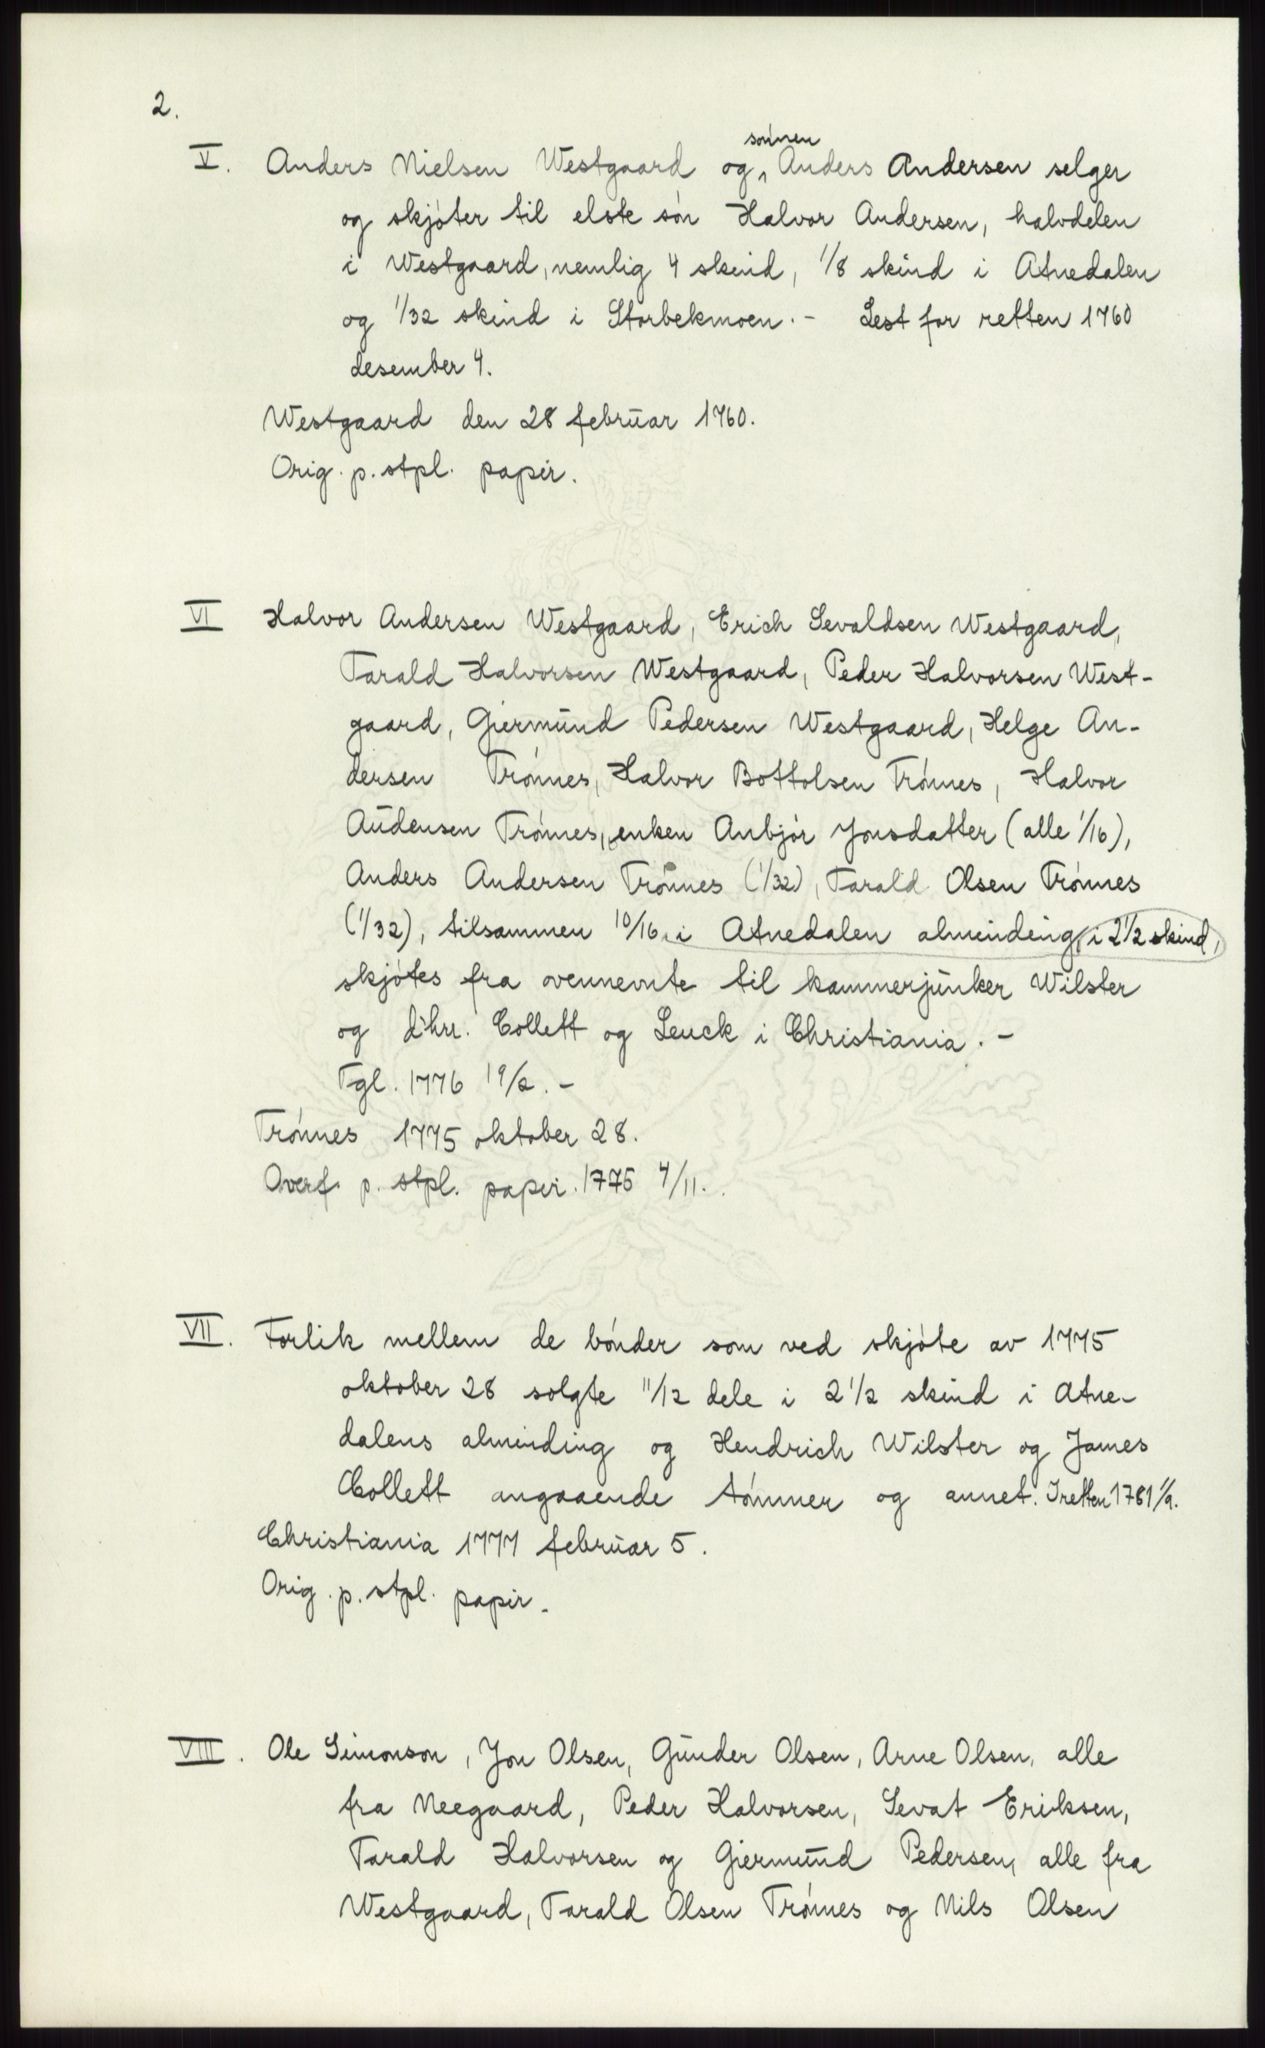 2.
V. Anders Nielsen Westgaard og sönnen Anders Andersen selger
og skjöter til elste sön Halvor Andersen, halvdelen
i Westgaard, nemlig 4 skind, 1/8 skind i Atnedalen
og 1/32 skind i Storbekmoen. - Lest for retten 1760
desember 4.
Westgaard den 28 februar 1760.
Orig. p. stpl. papir.
VI Halvor Andersen Westgaard, Erich Sevaldsen Westgaard,
Tarald Halvorsen Westgaard, Peder Halvorsen West-
gaard, Giermund Pedersen Westgaard, Helge An-
dersen Trönnes, Halvor Bottolsen Trönnes, Halvor
Audensen Trönnes, enken Anbjör Jonsdatter (alle 1/16),
Anders Andersen Trönnes (1/32), Tarald Olsen Trönnes
(1/32), tilsammen 10/16 i Atnedalen alminding, i 2 1/2 skind,
skjötes fra ovennevnte til kammerjunker Wilster
og d'hrr. Collett og Leuck i Christiania. -
Tgl. 1776 19/2. -
Trönnes 1775 oktober 28.
Overf. p. stpl. papir. 1775 4/11.
VII. Forlik mellem de bönder som ved skjöte av 1775
oktober 28 solgte 11/12 dele i 2 1/2 skind i Atne-
dalens alminding og Hendrich Wilster og James
Collett angaaende tömmer og annet. I retten 1781 1/9.
Christiania 1777 februar 5.
Orig. p. stpl. papir.
VIII. Ole Simonson, Jon Olsen, Gunder Olsen, Arne Olsen, alle
fra Neegaard, Peder Halvorsen, Sevat Eriksen,
Tarald Halvorsen og Giermund Pedersen, alle fra
Westgaard, Tarald Olsen Trönnes og Nils Olsen